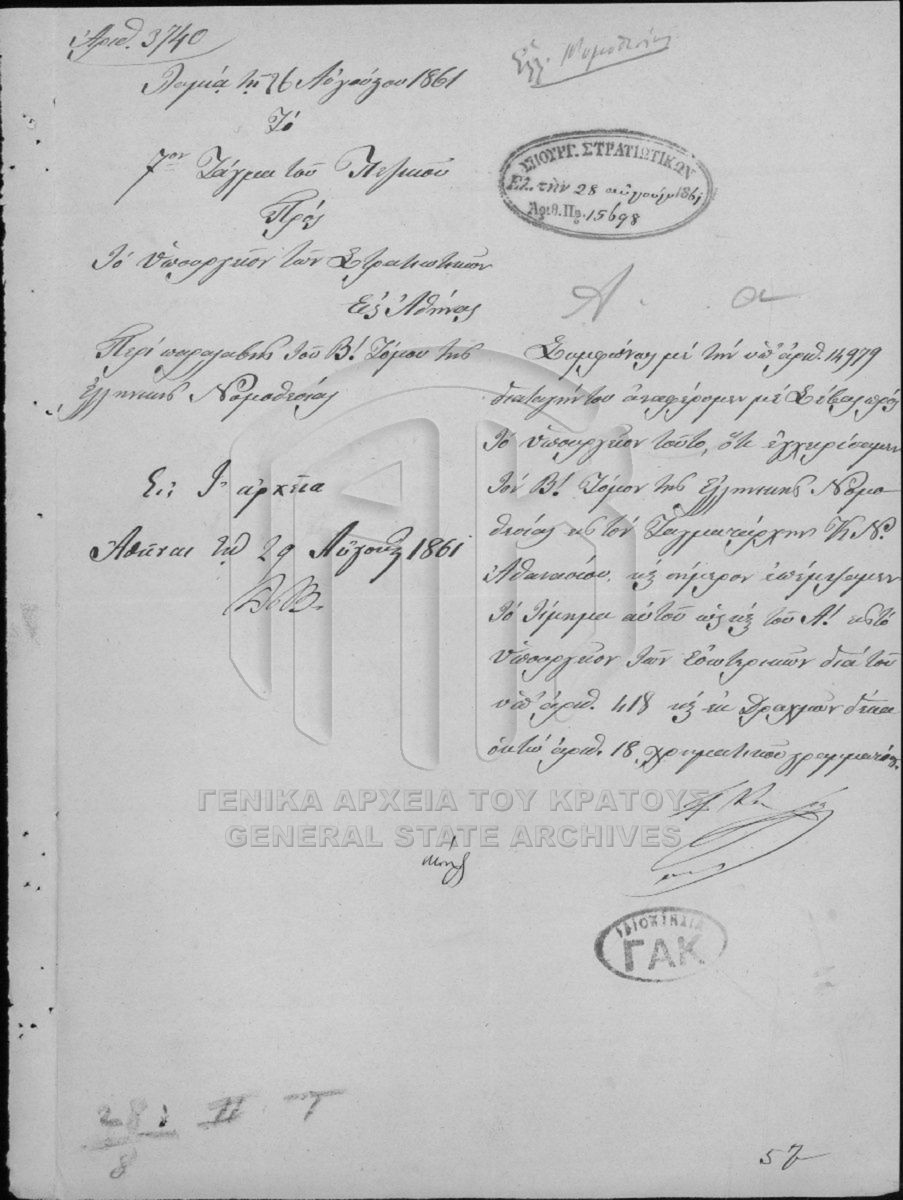 Ἀριθ. 3740
Λαμία τῇ 26 Αὐγούστου 1861
Τὸ
7ον Τάγμα τοῦ Πεζικοῦ
Πρὸς
τὸ Ὑπουργεῖον τῶν Στρατιωτικῶν
Εἰς Ἀθήνας
Περὶ παραλαβῆς τοῦ Β! Τόμου τῆς
Ἑλληνικῆς Νομοθεσίας
Εἰς τ᾽ ἀρχεῖα
Ἀθῆναι τῇ 29 Αὐγούστ 1861
Ἑλλ. Νομοθεσία
ΥΠΟΥΡΓ. ΣΤΡΑΤΙΩΤΙΚΩΝ
Ἐλ. τὴν 28 αὐγούστ 1861
Ἀριθ. Πρ. 15698
Α. α
Συμφώνως μὲ τὴν ὑπ᾽ ἀριθ. 14979
διαταγήν του ἀναφέρομεν μὲ Σέβας πρὸς
τὸ Ὑπουργεῖον τοῦτο, ὅτι ἐγχειρίσαμεν
τὸν Β! Τόμον τῆς Ἑλληνικῆς Νομο
θεσίας εἰς τὸν Ταγματάρχην Κ. Ν.
Ἀθανασίου, καὶ σήμερον ἐπέμψαμεν
τὸ τίμημα αὐτοῦ ὡς καὶ τοῦ Α! εἰς τὸ
Ὑπουργεῖον τῶν Ἐσωτερικῶν διὰ τοῦ
ὑπ᾽ ἀριθ. 418 καὶ ἐκ Δραχμῶν δέκα
ὀκτὼ ἀριθ. 18 χρηματικοῦ γραμματίου.
ΓΕΝΙΚΑ ΑΡΧΕΙΑ ΤΟΥ ΚΡΑΤΟΥΣ
GENERAL STATE ARCHIVES
ΙΔΙΟΚΤΗΣΙΑ
ΓΑΚ
28
8
57